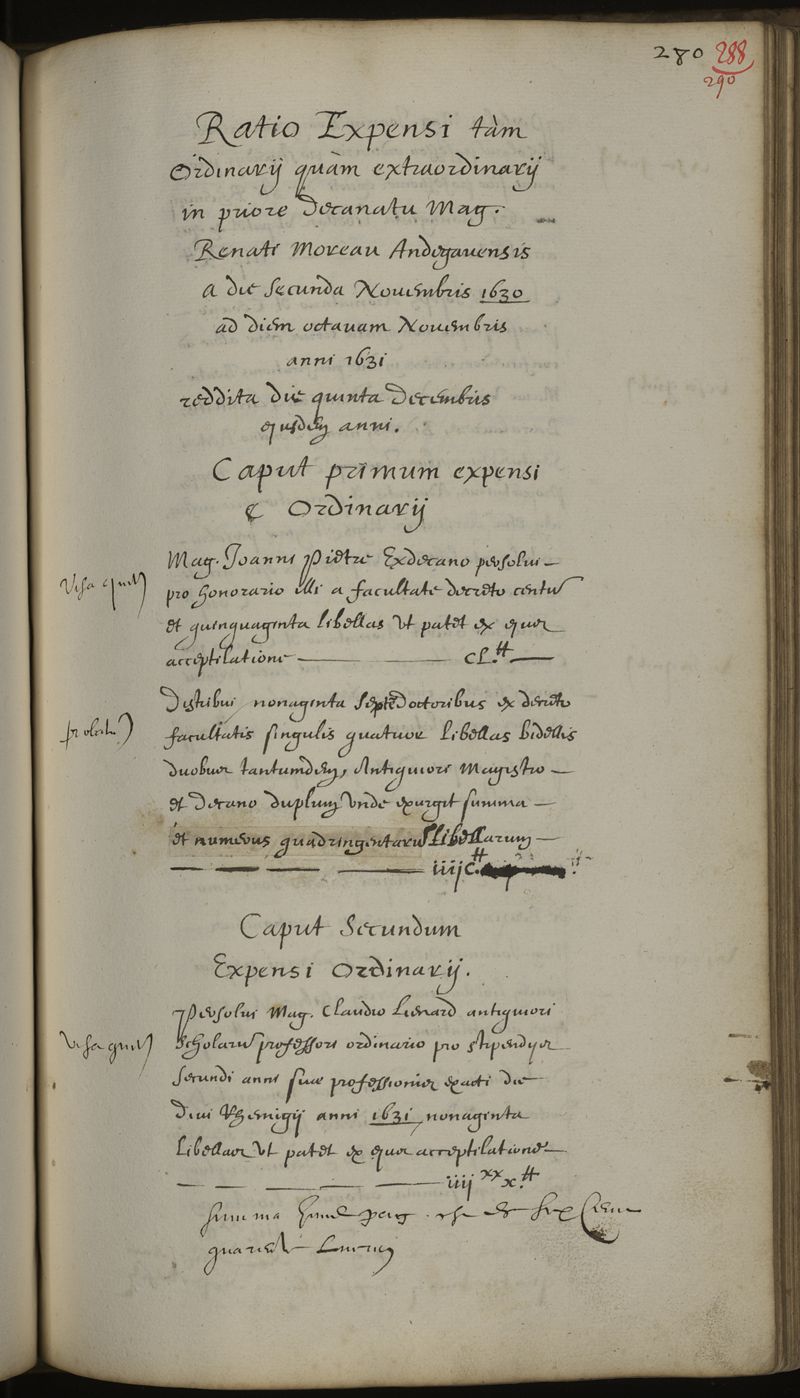 280 288
290
Ratio Expensi tàm
Ordinarij quàm extraordinarij
in priore Decanatu Mag.
Renati Moreau Andegauensis
A die Secunda Nouembris 1630
ad diem octauam Nouembris
anni 1631
reddita die quinta Decembris
ejusdem anni.
Caput primum expensi
Ordinarij
Mag. Joanni Pietre Exdecano persolui
Visa quitt
pro honorario illi a facultate decreto centum
et quinquaginta libellas Vt patet ex ejus
acceptilatione CL.tt
Distribui nonaginta Septem Doctoribus ex decreto
facultatis singulis quatuor libellas bidellis
duobus tantumdem, Antiquiori Magistro
et Decano duplum Vnde exurgit summa
et numerus quadringentarum libellarum
iiijC.tt
Caput Secundum
Expensi Ordinarij.
Persolui Mag. Claudio Lienard antiquiori
Visa quitt
Scholarum professori ordinario pro stipendijs
secundi anni suae professionis exacti die
Diui Rhemigij anni 1631 nonaginta
libellas Vt patet ex ejus acceptilatione
iiij xx x.tt
Summa